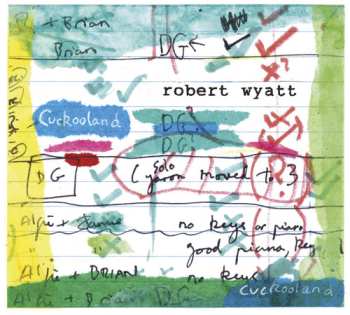 + Brian
Brian DG
robert wyatt
Cuckooland DG?
DG?
DG (solo moved to 3
Alfie + no keys or piano
good piano, key
Alfie + BRIAN no keys
Alfie + Brian DG
Cuckooland